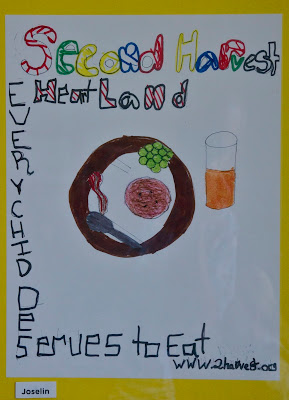 Second Harvest
Heart Land
EVERYCHILD DeServes to Eat
www.2harvest.org
Joselin